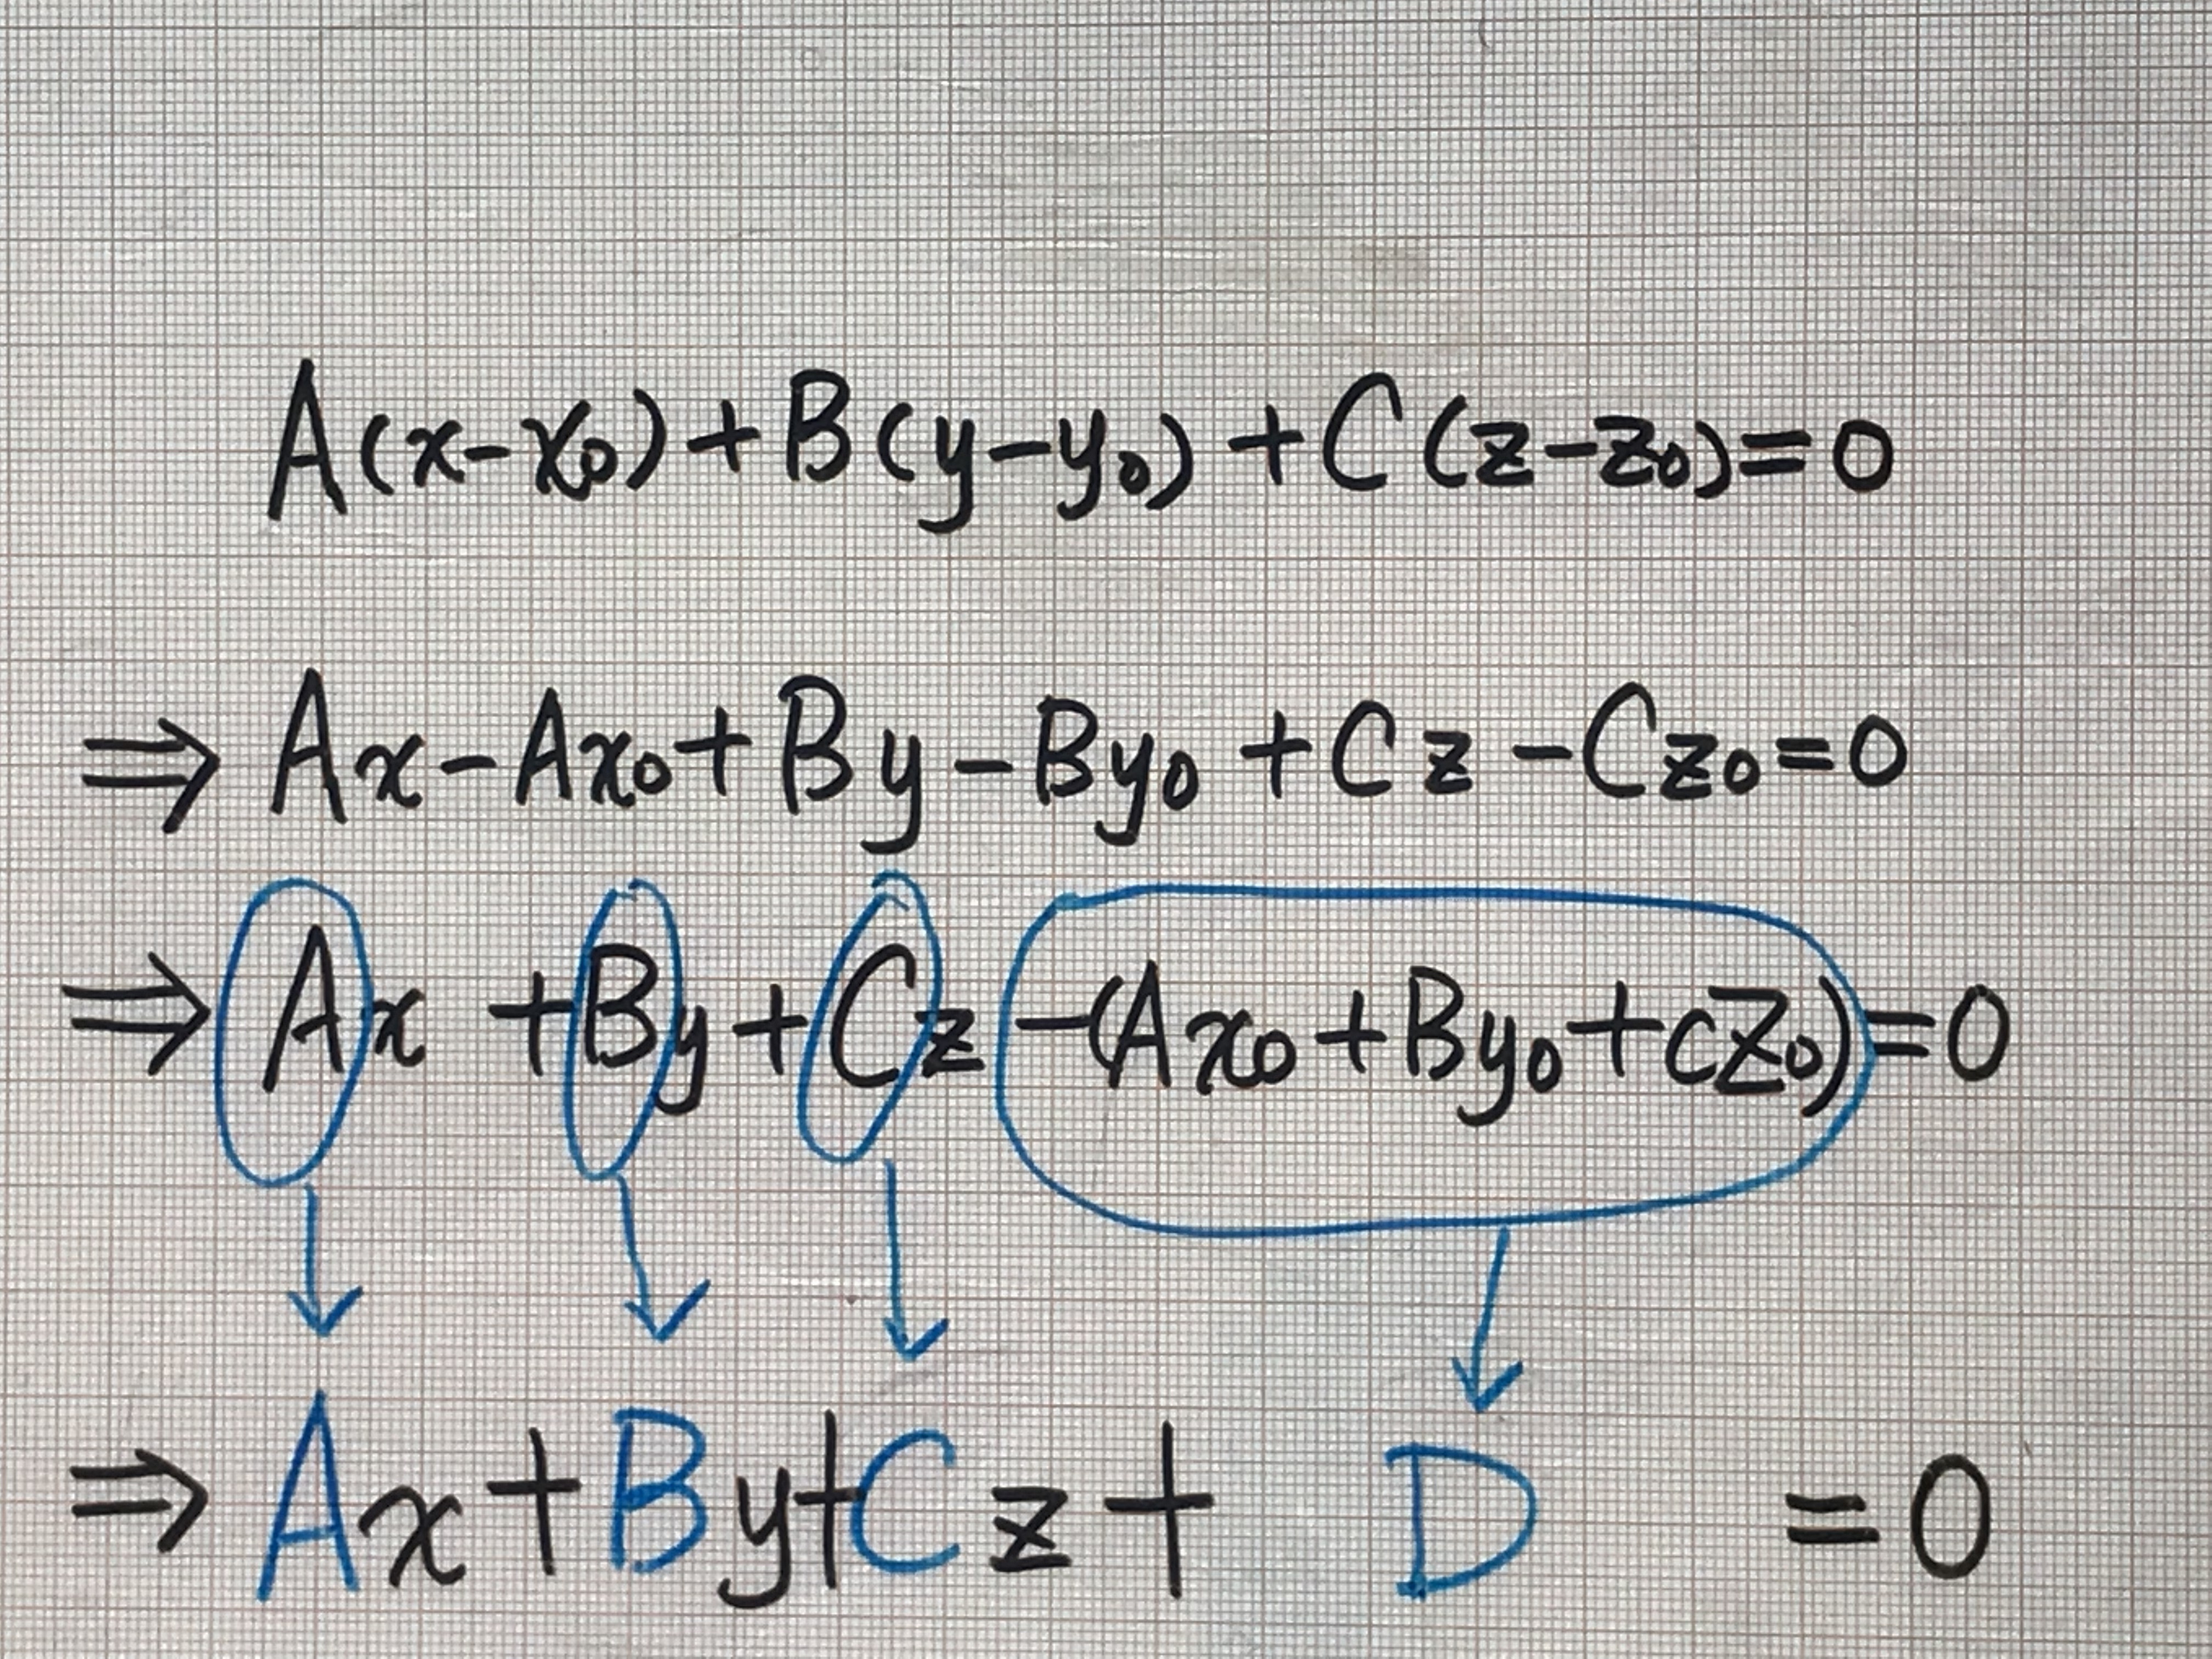 A(x-x₀)+B(y-y₀)+C(z-z₀)=0
⇒ Ax-Ax₀+By-By₀+Cz-Cz₀=0
⇒ Ax+By+Cz-(Ax₀+By₀+cz₀)=0
⇒ Ax+By+Cz+D=0